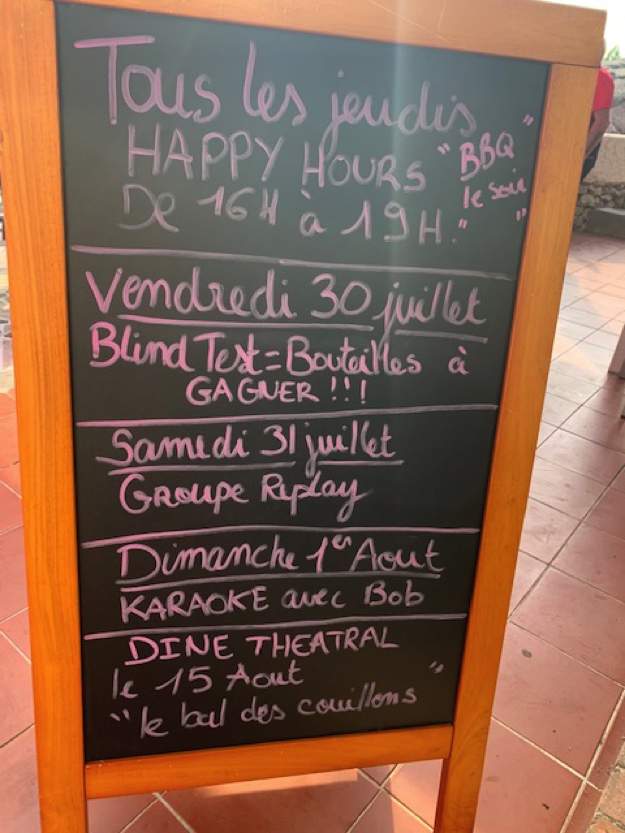 Tous les jeudis
HAPPY HOURS "BBQ
le soir"
De 16H à 19H."
Vendredi 30 juillet
Blind Test = Bouteilles à
GAGNER !!!
Samedi 31 juillet
Groupe Replay
Dimanche 1er Aout
KARAOKE avec Bob
DINE THEATRAL
le 15 Aout
"le bal des couillons"